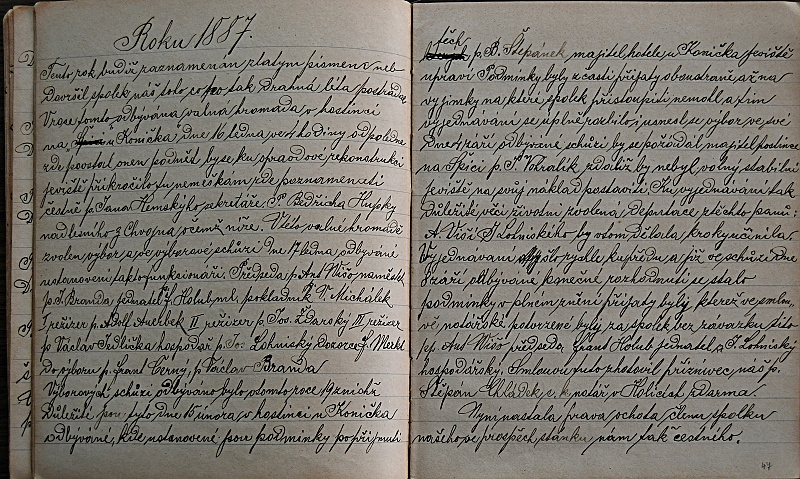 Roku 1887.
Tento rok budiž zaznamenán zlatým písmem neb
dovršil spolek náš toto co po tak drahná léta postrádal
V roce tomto odbývána valná hromada v hostinci
na u Koníčka dne 16 ledna ve 4 hodiny odpoledne
zde povstal onen podnět by se ku opravdové rekonstrukci
jeviště přikročilo tu neméškám zde poznamenati
čestně p. Jana Hemského sekretáře. P. Bedřicha Hupky
nadlesního z Chvojna, o čemž níže. V této valné hromadě
zvolen výbor a ve výborové schůzi dne 17 ledna odbývané
ustanoveni takto funkcionáři. Předseda p. Ant Wišo náměstek
p. A. Branda jednatel Fr Holub ml. pokladník V. Michálek
I režizer p. Adolf Auerbek II režizer p. Jos. Ždarský III režizer
p. Václav Jedlička hospodář p. Jos. Lohniský Dozorce J. Merkl
do výboru p. Frant Černý, p. Václav Branda
Výborových schůzí odbýváno bylo v tomto roce 19 z nichž
Důležité jsou tyto dne 15 února v hostinci u Koníčka
odbývané, kde ustanovené jsou podmínky po přijmutí
těch
p. B. Štěpánek majitel hotele u Koníčka jeviště
upraví Podmínky byly z části přijaty oboustraně až na
vyjímky na které spolek přistoupiti nemohl a tím
vyjednávání se úplně rozbilo, i usnesl se výbor ve své
dne 4 září odbývané schůzi by se požádal majitel hostince
na Špici p. F. Votralík zdaliž by nebyl volný stabilní
jeviště na svůj náklad postaviti. Ku vyjednávání tak
důležité věci životní zvolená Deputace z těchto pánů:
A. Viší J Lohniského by v tom důkladu kroky učinila.
Vyjednávaní šlo rychle kupředu a již ve schůzi dne
září odbývané konečné rozhodnutí se stalo
podmínky v plném znění přijaty byly kteréž ve smlouvě
ve notářské potvrzené byly za spolek bez závazku tito
p. Ant Wišo předseda, Frant Holub jednatel a J. Lohniský
hospodářský. Smlouvu tuto zhotovil příznivec náš p.
Štěpán c. k. notář v Holicích zdarma.
Nyní nastala pravá ochota členů spolku
našeho ve prospěch stánku nám tak čestného.
47